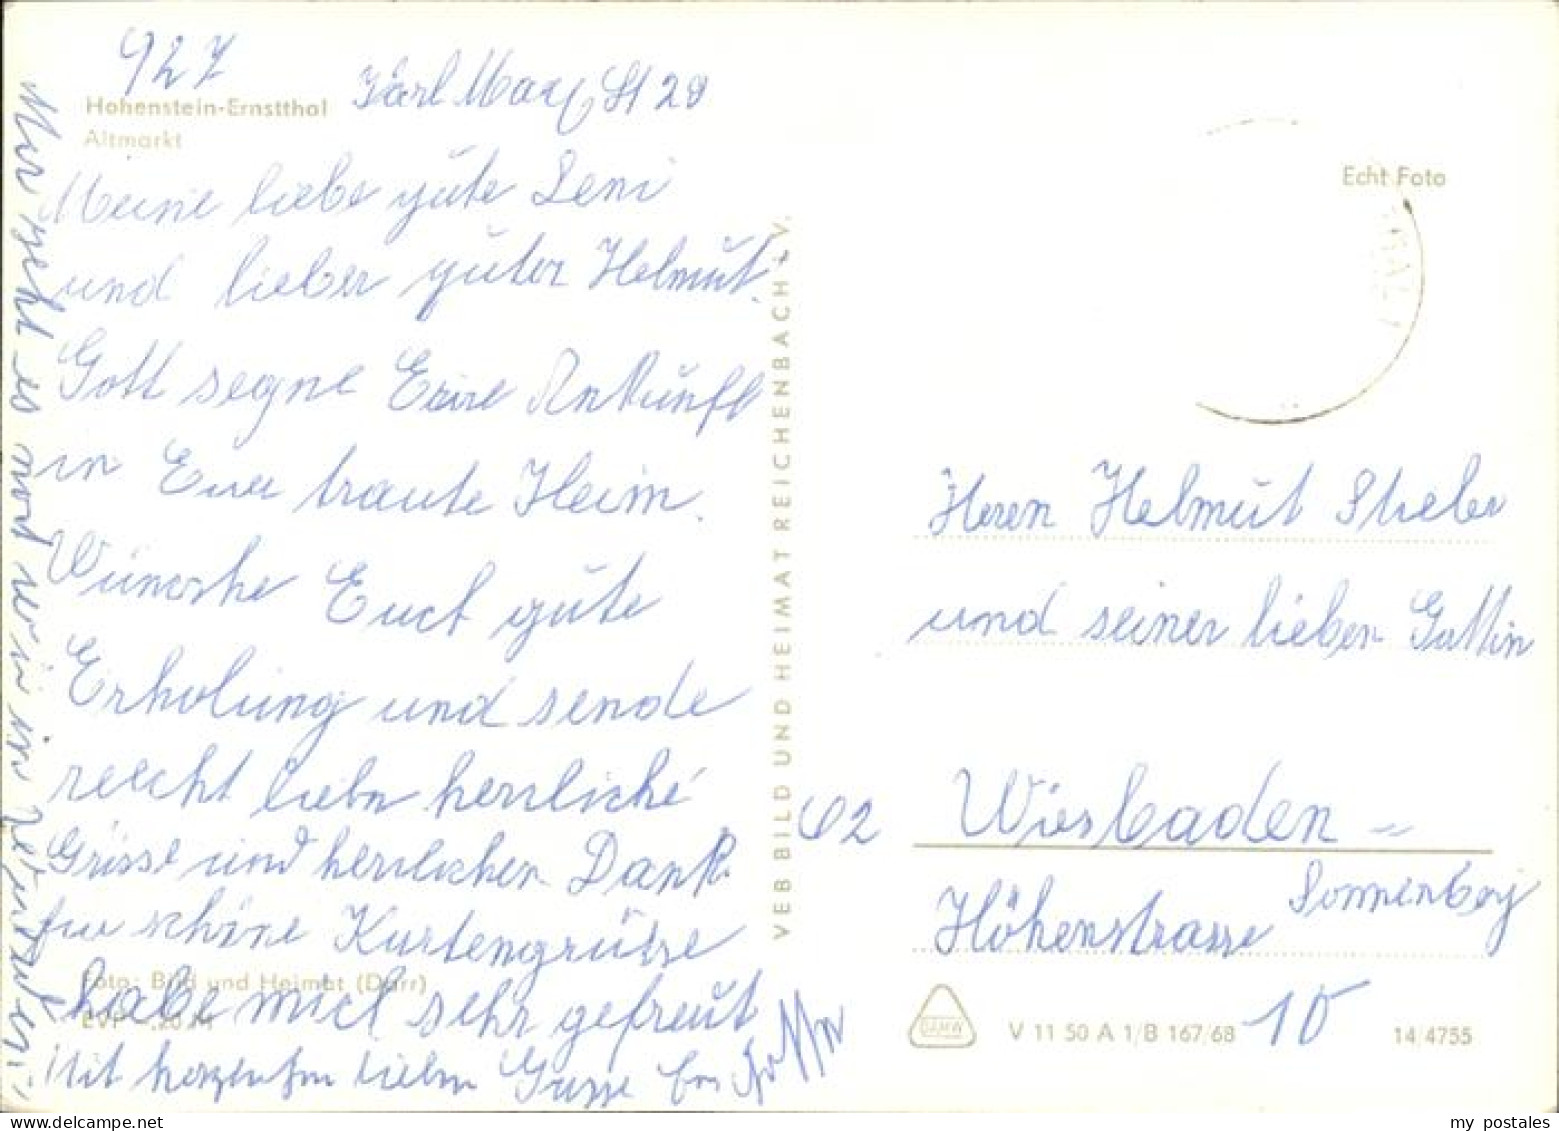 927
Karl Marx St 29
Hohenstein-Ernstthal
Altmarkt
Meine liebe gute Leni
und lieber guter Helmut.
Gott segne Eure Ankunft
in Euer traute Heim.
Wünsche Euch gute
Erholung und sende
recht liebe herzliche
Grüsse und herzlichen Dank
für schöne Kartengrüsse
habe mich sehr gefreut
Mit herzenslieben Grüsse
Mir geht es
Foto: Bild und Heimat (Dörr)
EVP -.20 M
VEB BILD UND HEIMAT REICHENBACH i. V.
Echt Foto
Herrn Helmut Stieber
und seiner lieben Gattin
62 Wiesbaden -
Sonnenberg
Höhenstrasse
10
V 11 50 A 1/B 167/68
14/4755
my postales